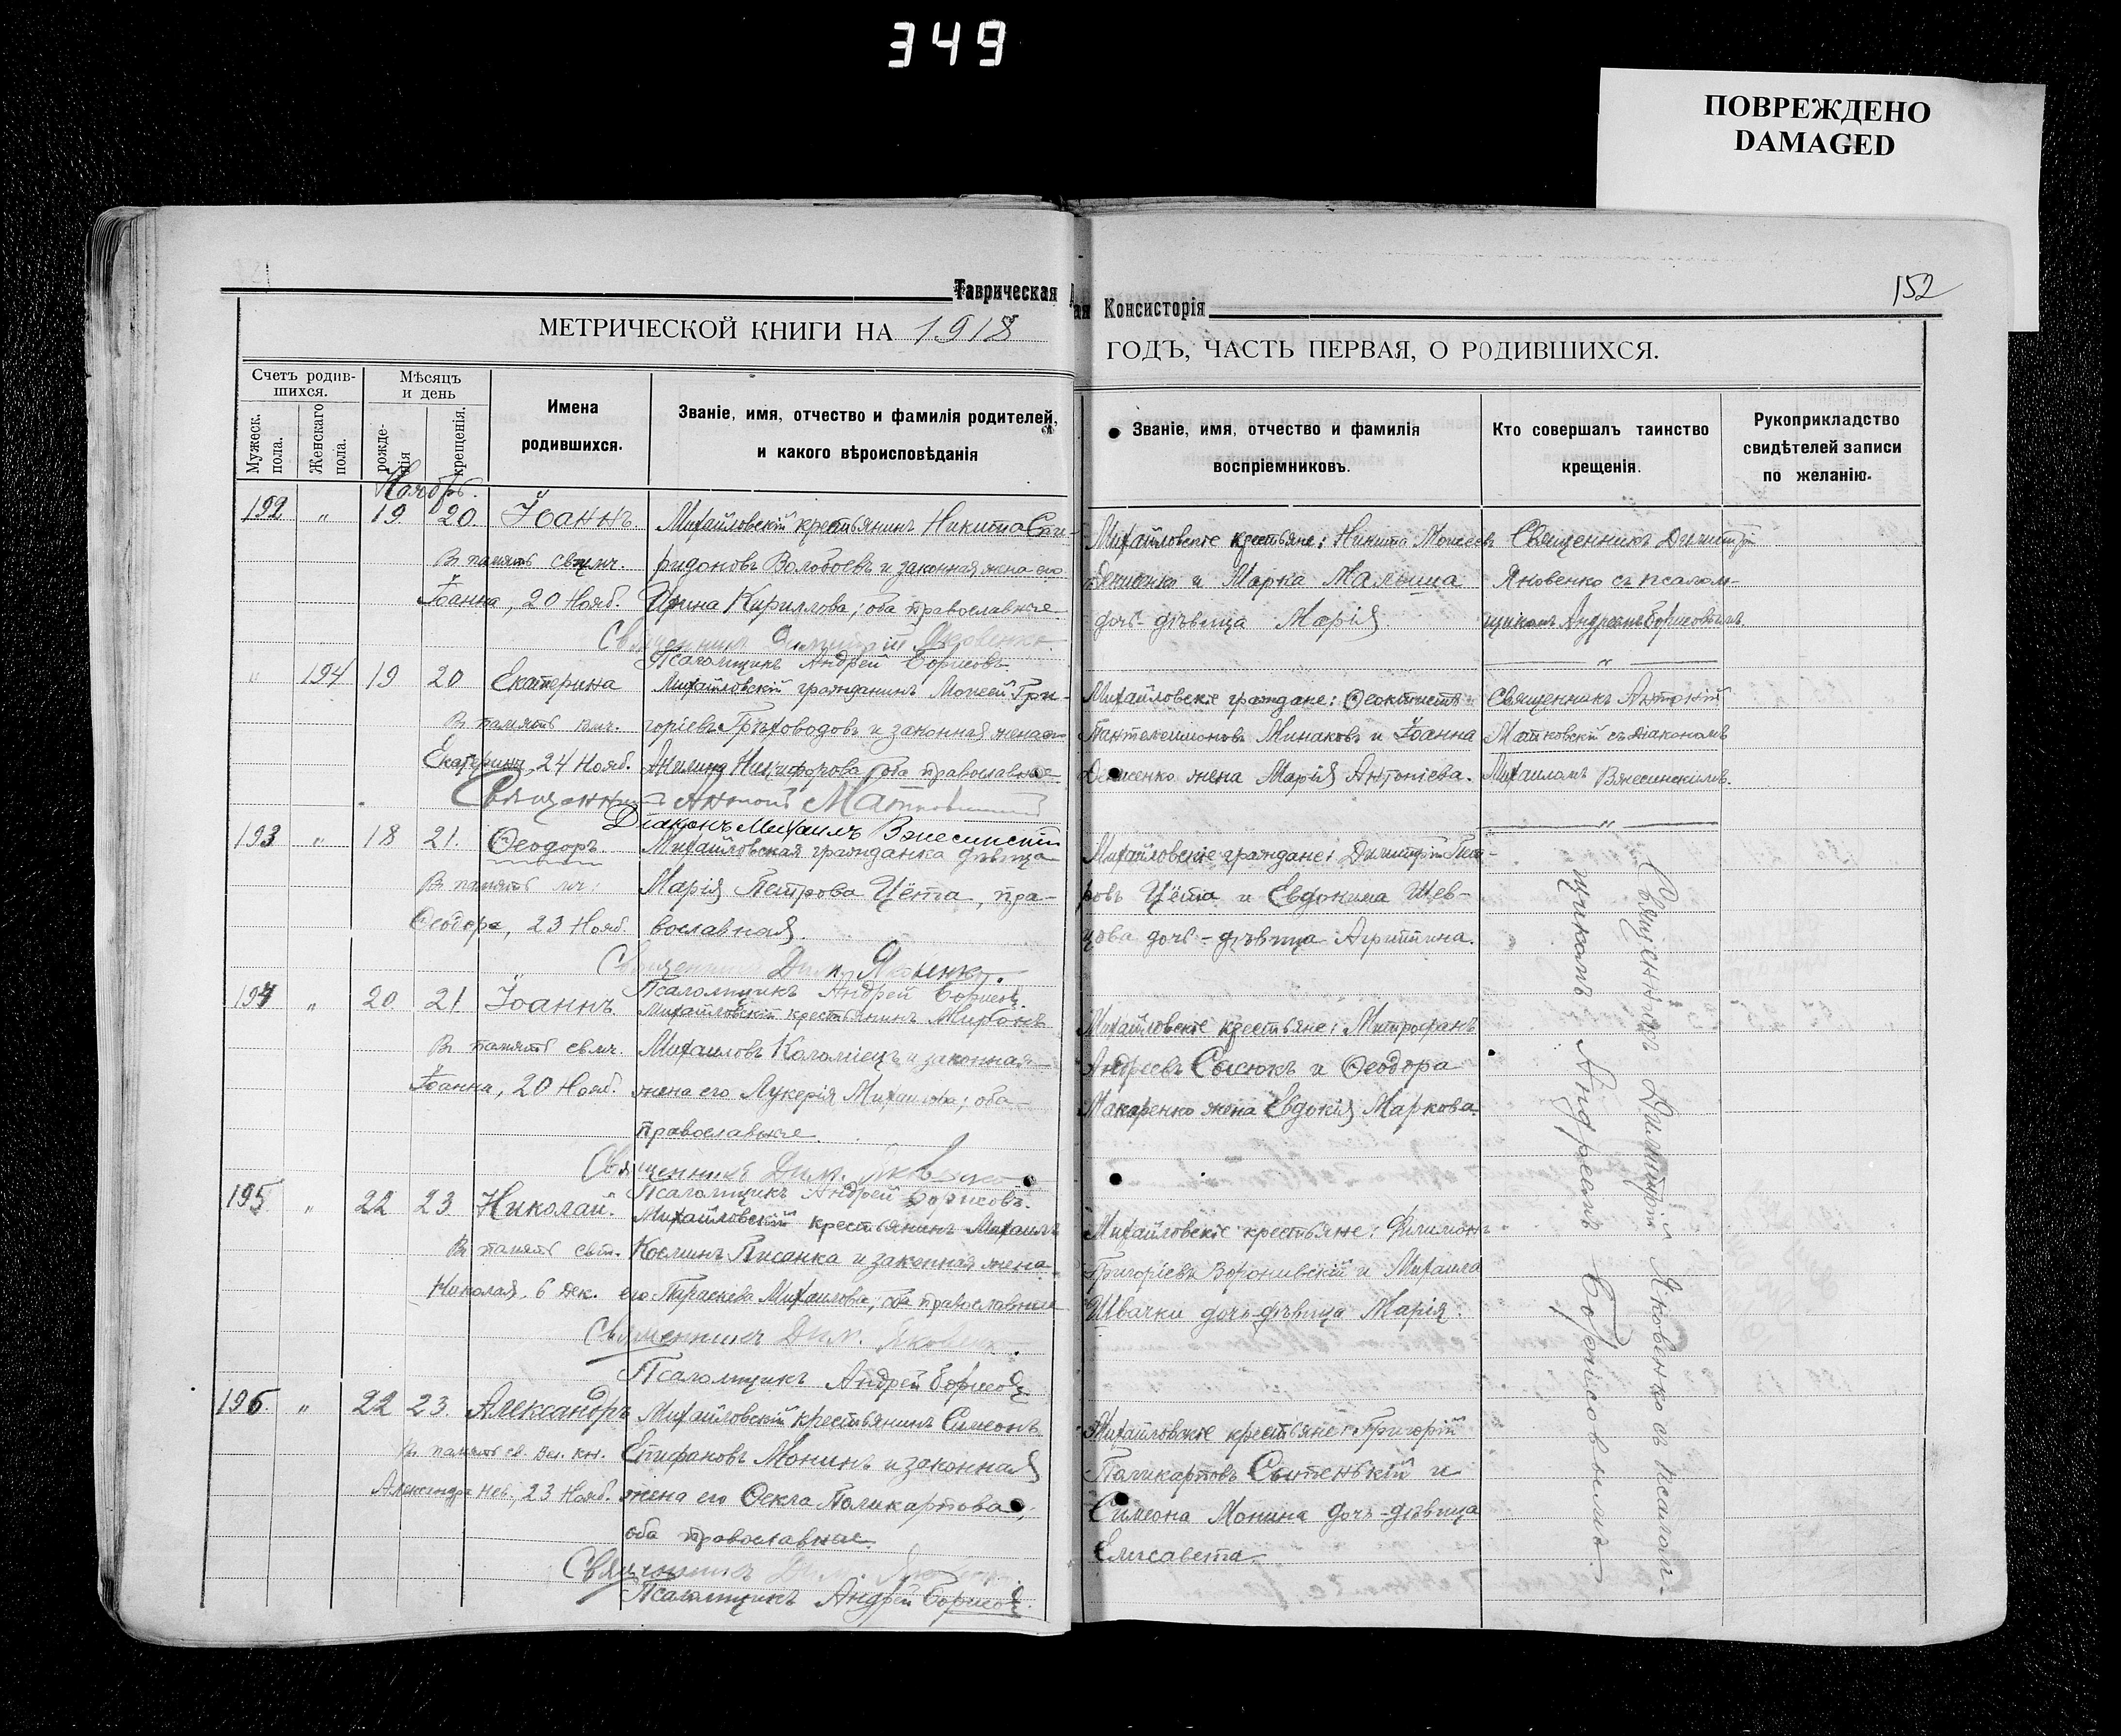 349
ПОВРЕЖДЕНО
DAMAGED
152
Таврическая
ая Консисторія
МЕТРИЧЕСКОЙ КНИГИ НА 1918
ГОДЪ, ЧАСТЬ ПЕРВАЯ, О РОДИВШИХСЯ.
Счетъ родив-
шихся.
Мужеск.
пола.
Женскаго
пола.
Мѣсяцъ
и день
рожде-
нія
крещенія.
Имена
родившихся.
Званіе, имя, отчество и фамилія родителей,
и какого вѣроисповѣданія
Званіе, имя, отчество и фамилія
воспріемниковъ.
Кто совершалъ таинство
крещенія.
Рукоприкладство
свидѣтелей записи
по желанію.
Ноябрь.
192 " 19 20 Іоаннъ.
Въ память свщмч.
Іоанна, 20 Нояб.
Михайловскій крестьянинъ Никита Спи-
ридоновъ Волобоевъ и законная жена его
Ирина Кириллова; оба православные
Священникъ Димитрій Яковенко.
Псаломщикъ Андрей Борисовъ.
Михайловскіе крестьяне: Никита Моисеевъ
и Марка
дочь-дѣвица Марія.
Священникъ Димитрій
Яковенко съ псалом-
щикомъ Андреемъ Борисовымъ
" 194 19 20 Екатерина
Въ память вмч.
Екатерины, 24 Нояб.
Михайловскій гражданинъ Моисей Гри-
горіевъ Грѣховодовъ и законная жена его
Никифорова, оба православные
Священникъ Антоній Матковскій
Діаконъ Михаилъ Вжесинскій
Михайловскіе граждане: Ѳеоктистъ
Пантелеимоновъ Минаковъ и Іоанна
Денисенко жена Марія Антоніева.
Священникъ Антоній
Матковскій съ діакономъ
Михаиломъ Вжесинскимъ.
193 " 18 21. Ѳеодоръ.
Въ память мч.
Ѳеодора, 23 Нояб.
Михайловская гражданка дѣвица
Марія Петрова Цёта, пра-
вославная.
Священникъ Дим. Яковенко.
Псаломщикъ Андрей Борисовъ.
Михайловскіе граждане: Димитрій Пет-
ровъ Цёта и Евдокима Шев-
цова дочь-дѣвица Агриппина.
194 " 20. 21 Іоаннъ
Въ память свмч.
Іоанна, 20 Нояб.
Михайловскій крестьянинъ Миронъ
Михаиловъ Коломіецъ и законная
жена его Лукерія Михаилова; оба
православные
Священникъ Дим. Яковенко
Псаломщикъ Андрей Борисовъ.
Михайловскіе крестьяне: Митрофанъ
Андреевъ Сысюкъ и Ѳеодора
Макаренко жена Евдокія Маркова.
195 " 22 23 Николай.
Въ память свт.
Николая, 6 Дек.
Михайловскій крестьянинъ Михаилъ
Косминъ Писанка и законная жена
его Параскева Михаилова; оба православные
Священникъ Дим. Яковенко.
Псаломщикъ Андрей Борисовъ
Михайловскіе крестьяне: Филимонъ
Григоріевъ Воронивскій и Михаила
Швачки дочь-дѣвица Марія.
196. " 22 23. Александръ
Въ память св. вел. кн.
Александра Нев., 23 Нояб.
Михайловскій крестьянинъ Симеонъ
Епифановъ Монинъ и законная
жена его Ѳекла Поликарпова;
оба православные.
Священникъ Дим. Яковенко.
Псаломщикъ Андрей Борисовъ.
Михайловскіе крестьяне: Григорій
Поликарповъ Сытенькій и
Симеона Монина дочь-дѣвица
Елисавета.
Священникъ Димитрій Яковенко съ псалом-
щикомъ Андреемъ Борисовымъ.